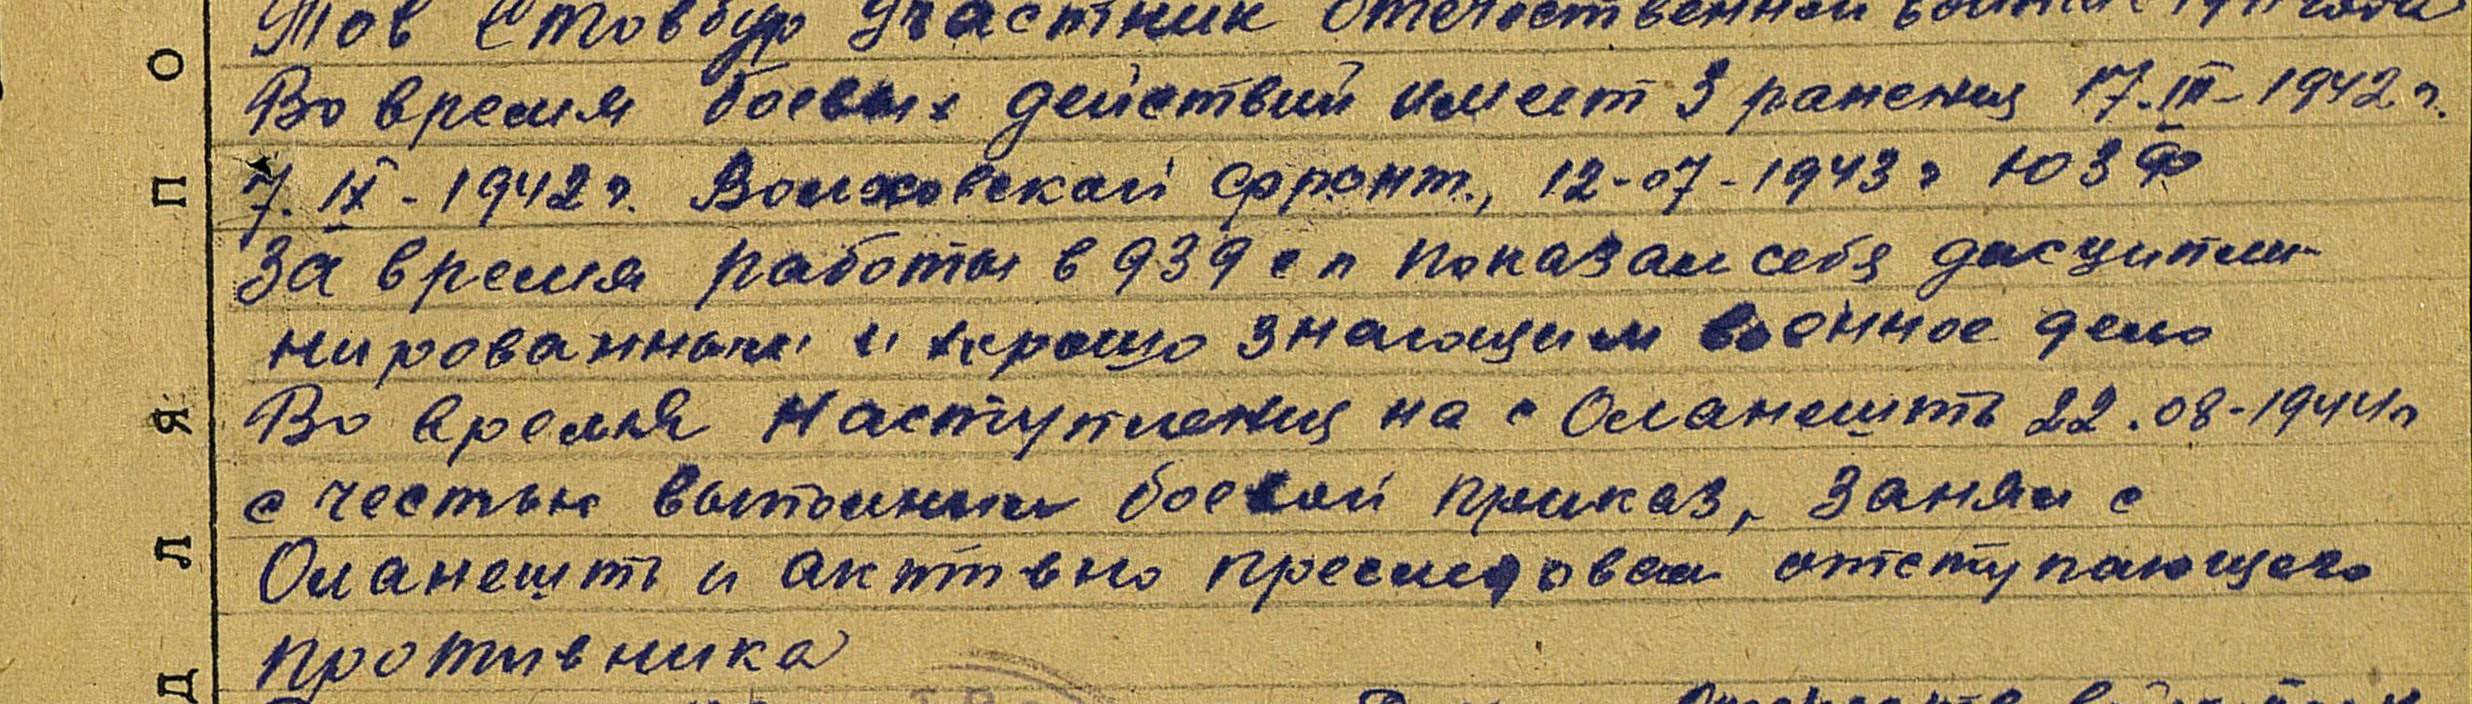 Тов Стовбур участник отечественной войны с 1941 года
Во время боевых действий имеет 3 ранения 17.III-1942 г.
7.IX-1942 г. Волховский фронт., 12-07-1943 г ЮЗФ
За время работы в 939 сп показал себя дисципли-
нированным и хорошо знающим военное дело
Во время наступления на с Оланешты 22.08-1944 г
с честью выполнил боевой приказ, занял с
Оланешты и активно преследовал отступающего
противника
О
П
Я
Л
Д